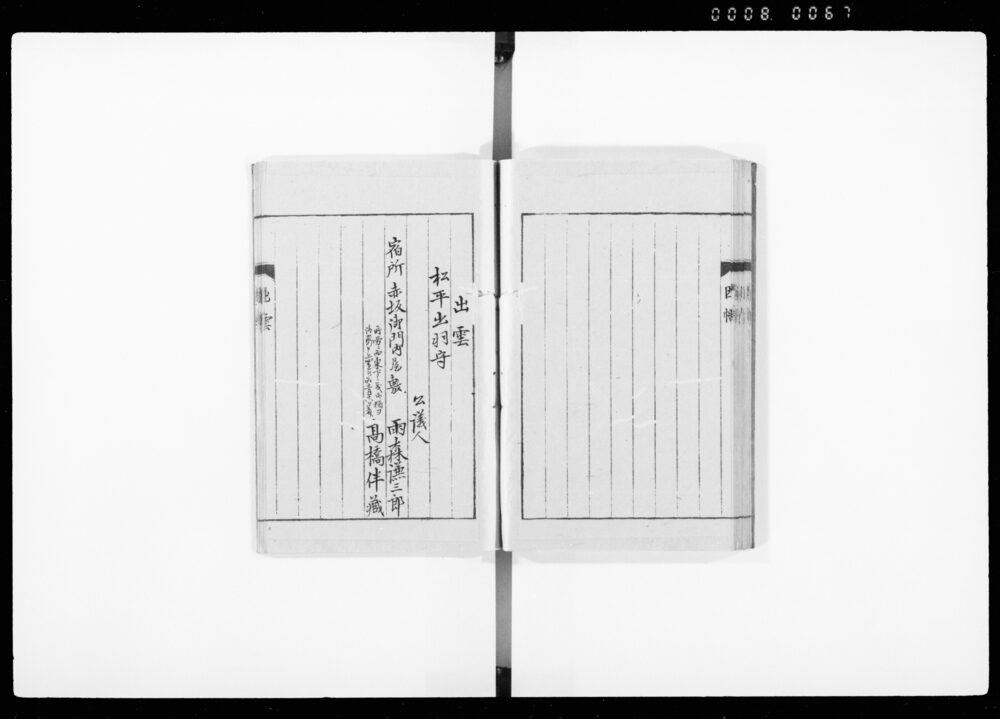 0008 0067
出雲
松平出羽守
公議人
宿所 赤坂御門内屋敷 雨森謙三郎
高橋伴蔵
出雲